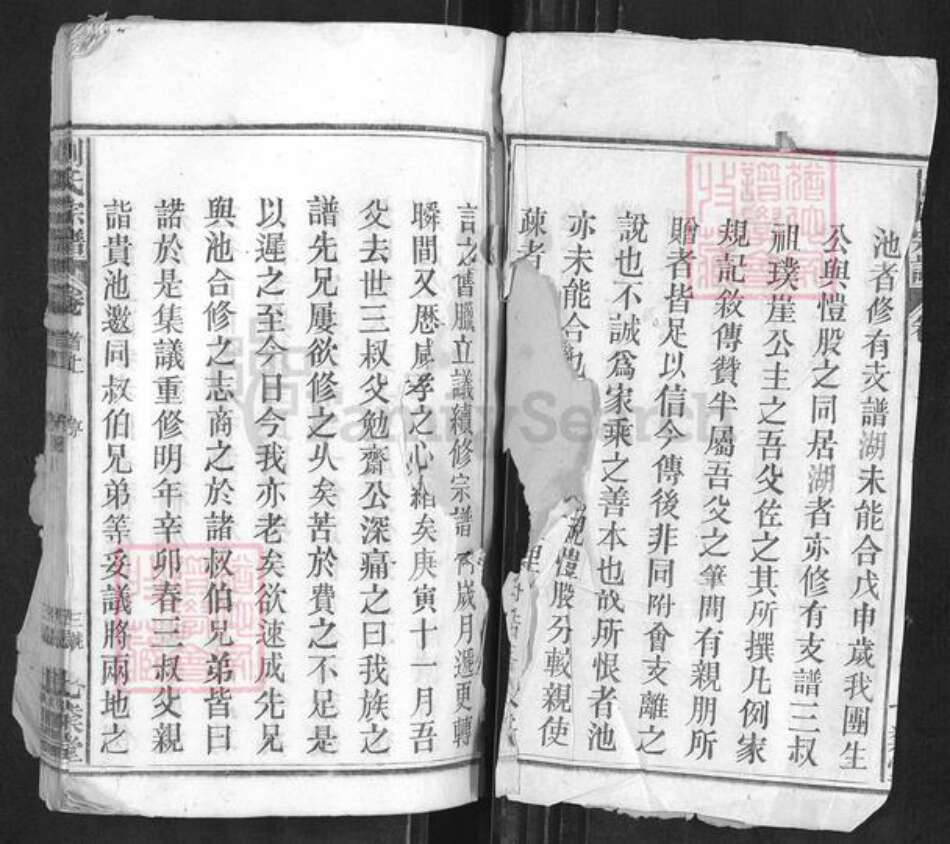 池者修有支譜湖未能合戊申歲我團生
公與愷股之同居湖者亦修有支譜三叔
祖璞崖公主之吾父佐之其所撰凡例家
規記敘傳贊半屬吾父之筆間有親朋所
贈者皆足以信今傳後非同附會支離之
說也不誠爲家乘之善本也故所恨者池
亦未能合也
股分較親使
疎者
言之舊臘立議續修宗譜
歲月遞更轉
瞬間又歷
孝之心
矣庚寅十一月吾
父去世三叔父勉齋公深痛之曰我族之
譜先兄屢欲修之久矣苦於費之不足是
以遲之至今日今我亦老矣欲速成先兄
與池合修之志商之於諸叔伯兄弟皆曰
諾於是集議重修明年辛卯春三叔父親
詣貴池邀同叔伯兄弟等妥議將兩地之
氏宗譜
卷首上
序
堂
FamilySearch